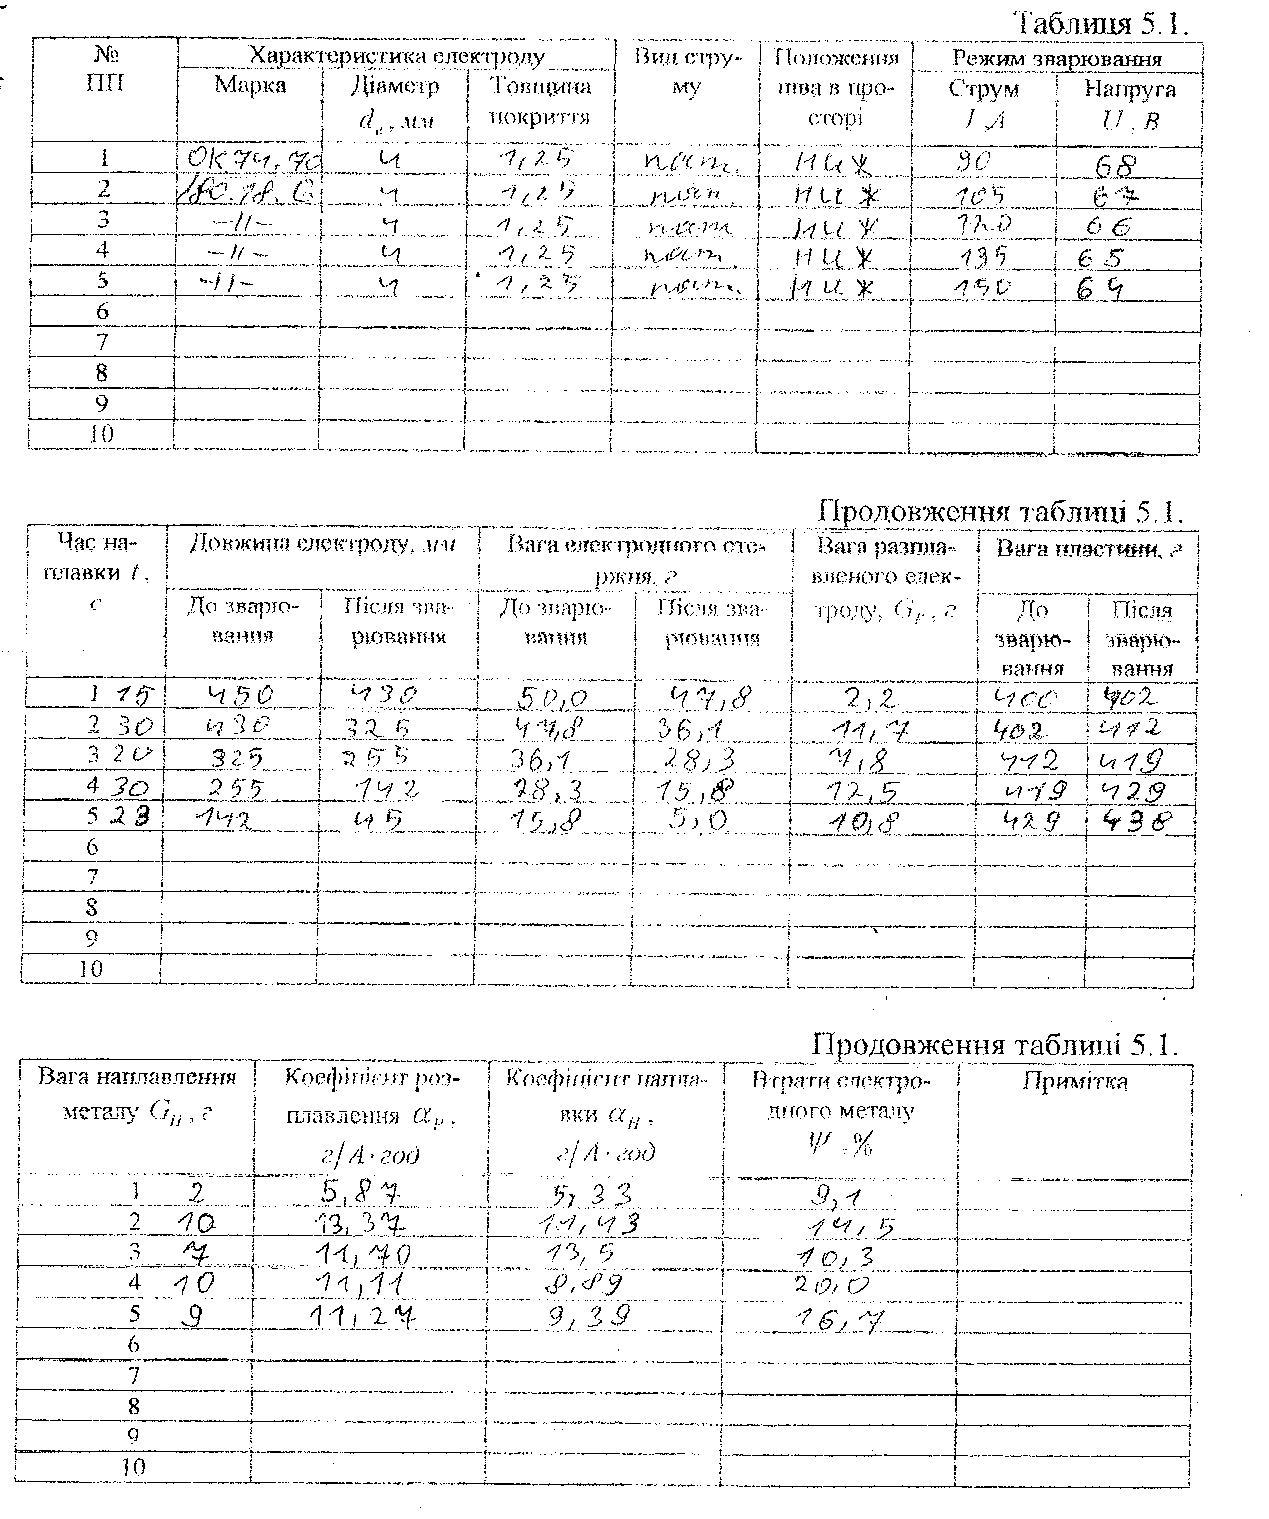 Таблиця 5.1.
№ ПП Характеристика електроду Вид струму Положення шва в просторі Режим зварювання
Марка Діаметр dе, мм Товщина покриття Струм I, А Напруга U, В
1 ОК74.70 4 1,25 пост. ниж 90 68
2 4 1,25 пост. ниж 105 67
3 –//– 4 1,25 пост ниж 120 66
4 –//– 4 1,25 пост. ниж 135 65
5 –//– 4 1,25 пост. ниж 150 64
6
7
8
9
10
Продовження таблиці 5.1.
Час наплавки t, с Довжина електроду, мм Вага електродного стержня, г Вага разплавленого електроду, GР, г Вага пластини, г
До зварювання Після зварювання До зварювання Після зварювання До зварювання Після зварювання
1 15 450 430 50,0 47,8 2,2 400 402
2 30 430 325 47,8 36,1 11,7 402 412
3 20 325 255 36,1 28,3 7,8 412 419
4 30 255 142 28,3 15,8 12,5 419 429
5 23 142 45 15,8 5,0 10,8 429 438
6
7
8
9
10
Продовження таблиці 5.1.
Вага наплавлення металу GН, г Коефіцієнт розплавлення αР, г/А·год Коефіцієнт наплавки αН, г/А·год Втрати електродного металу Ψ, % Примітка
1 2 5,87 5,33 9,1
2 10 13,37 11,43 14,5
3 7 11,70 13,5 10,3
4 10 11,11 8,89 20,0
5 9 11,27 9,39 16,7
6
7
8
9
10